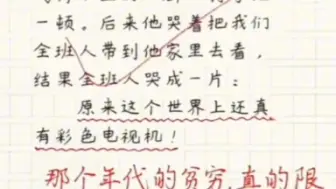 一顿。后来他哭着把我们
全班人带到他家里去看,
结果全班人哭成一片:
原来这个世界上还真
有彩色电视机!
那个年代的贫穷,真的限